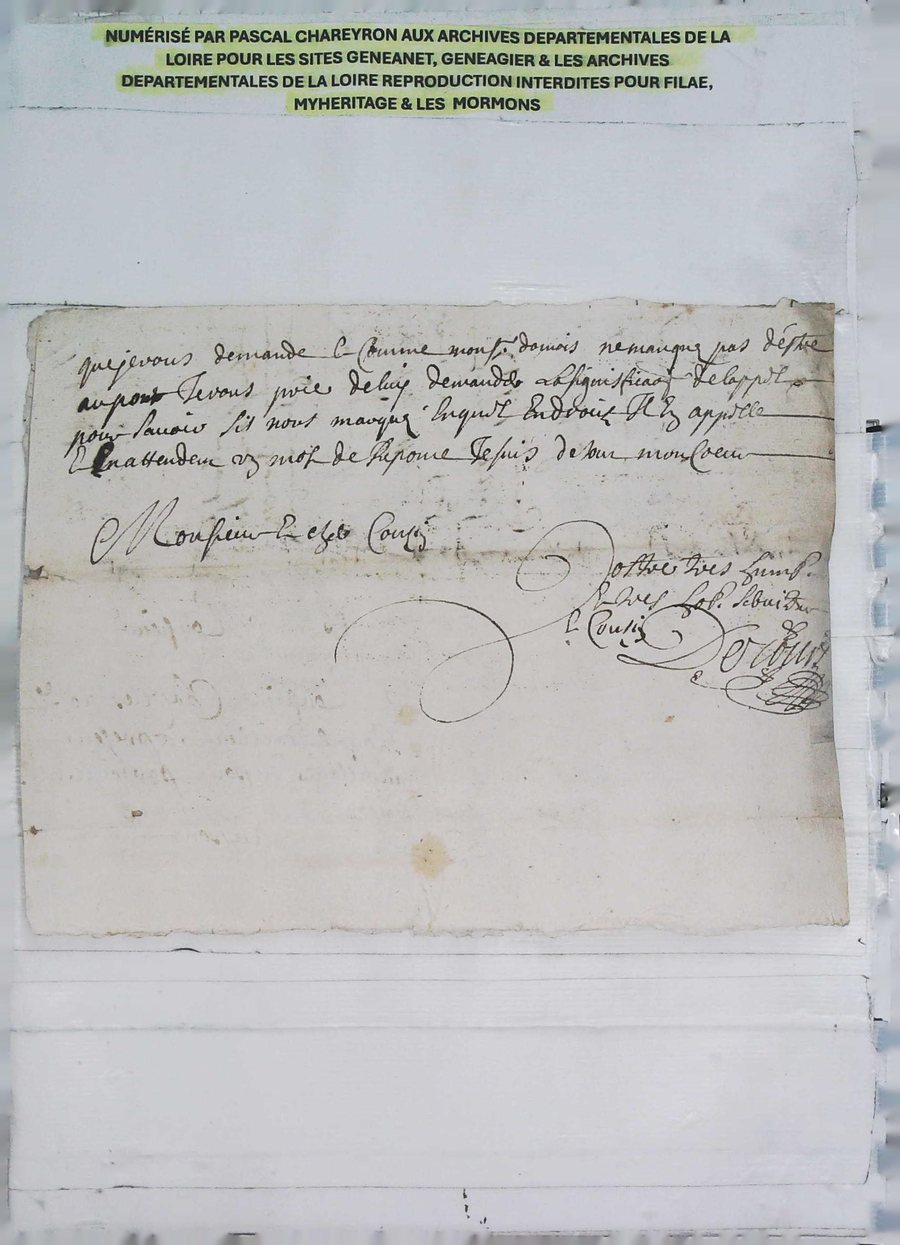 NUMÉRISÉ PAR PASCAL CHAREYRON AUX ARCHIVES DEPARTEMENTALES DE LA
LOIRE POUR LES SITES GENEANET, GENEAGIER & LES ARCHIVES
DEPARTEMENTALES DE LA LOIRE REPRODUCTION INTERDITES POUR FILAE,
MYHERITAGE & LES MORMONS
que je vous demande Et Comme monsr. domois ne manquez pas d'estre
au pont Je vous prie de luy demander la signification de lappel
pour savoir sil nous marque En quel Endroit Il En appelle
Et En attendant un mot de Response Je suis de tout mon Coeur
Monsieur Et cher Cousin
Vostre tres humb.
Et tres hob. serviteur
Et Cousin